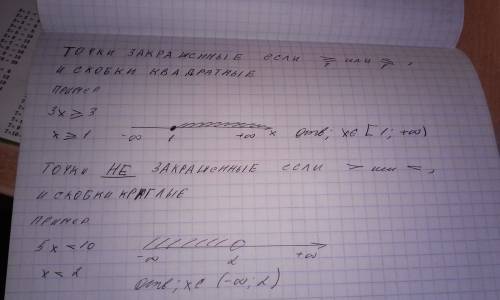 ТОЧКИ ЗАКРАШЕННЫЕ если ⩾ или ⩽,
И СКОБКИ КВАДРАТНЫЕ
ПРИМЕР
3x ⩾ 3
x ⩾ 1
-∞ 1 +∞ x
Отв; x∈ [1; +∞)
ТОЧКИ НЕ ЗАКРАШЕННЫЕ если > или <,
И СКОБКИ КРУГЛЫЕ
ПРИМЕР
5x < 10
x < 2
-∞ 2 +∞
Отв; x∈ (-∞; 2)